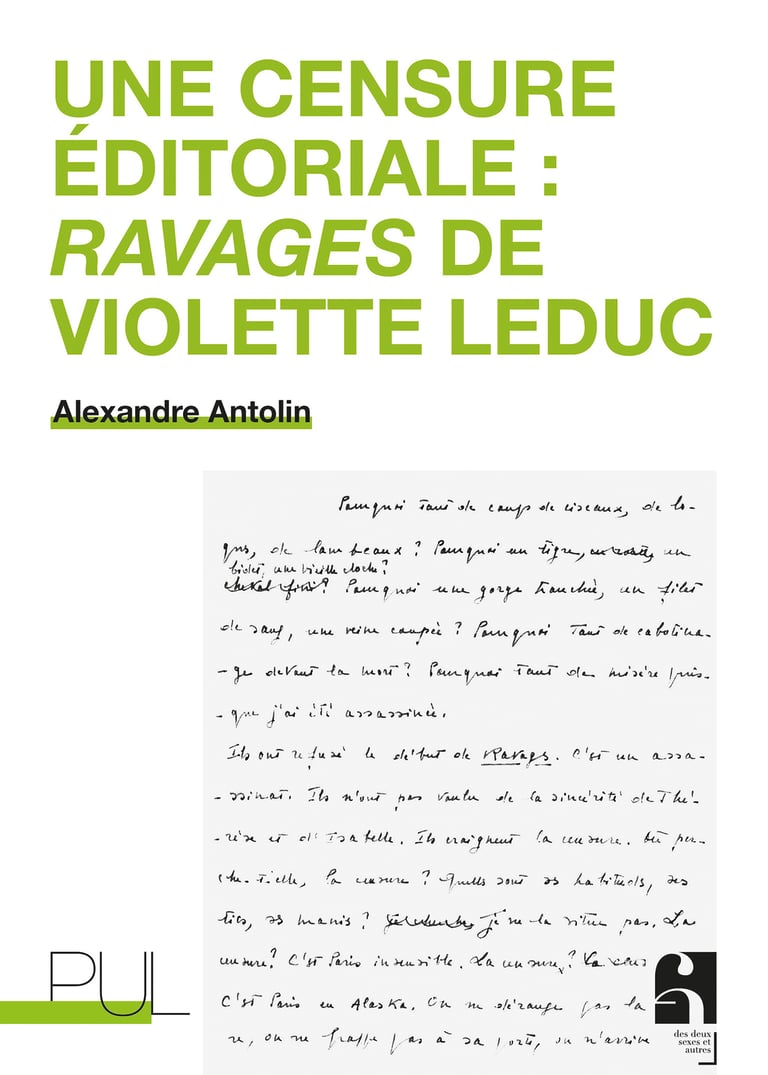 UNE CENSURE
ÉDITORIALE :
RAVAGES DE
VIOLETTE LEDUC
Alexandre Antolin
Pourquoi tant de coups de ciseaux, de lo-
ques, de lambeaux ? Pourquoi un tigre, un
bidet, une vieille cloche ?
Pourquoi une gorge tranchée, un filet
de sang, une veine coupée ? Pourquoi tant de cabotina-
-ge devant la mort ? Pourquoi tant de misère puis-
-que j'ai été assassinée.
Ils ont refusé le début de Ravages. C'est un assa-
-ssinat. Ils n'ont pas voulu de la sincérité de Thé-
-rèse et d'Isabelle. Ils craignent la censure. Où per-
che-t-elle, la censure ? Quelles sont ses habitudes, ses
tics, ses manies ? je ne la situe pas. La
censure ? C'est Paris insensible. La censure ?
C'est Paris en Alaska. On ne dérange pas la
re, on ne frappe pas à sa porte, on n'arrive
PUL
des deux
sexes et
autres